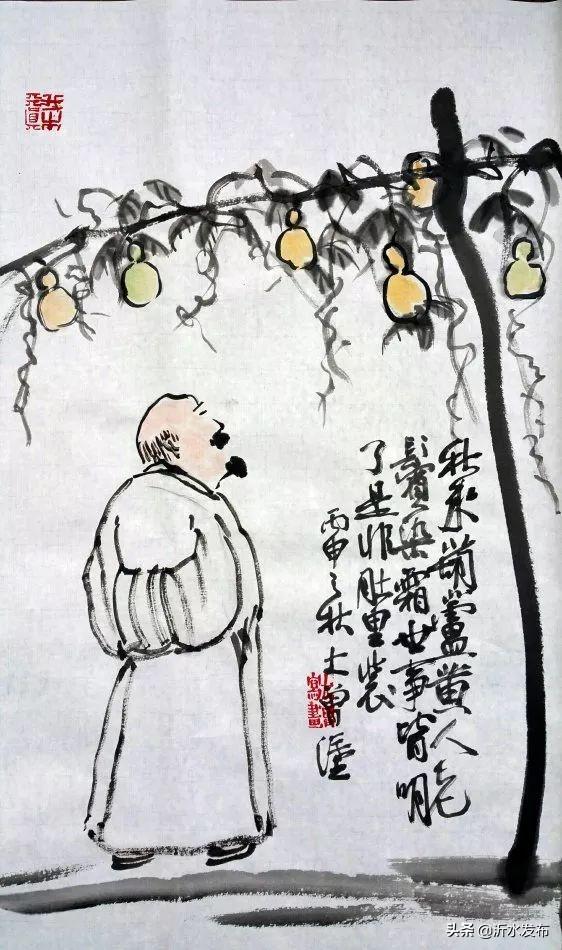 秋来葫蘆黄人老
鬢染霜世事皆明
了是非肚里装
丙申之秋大
头条 @沂水发布